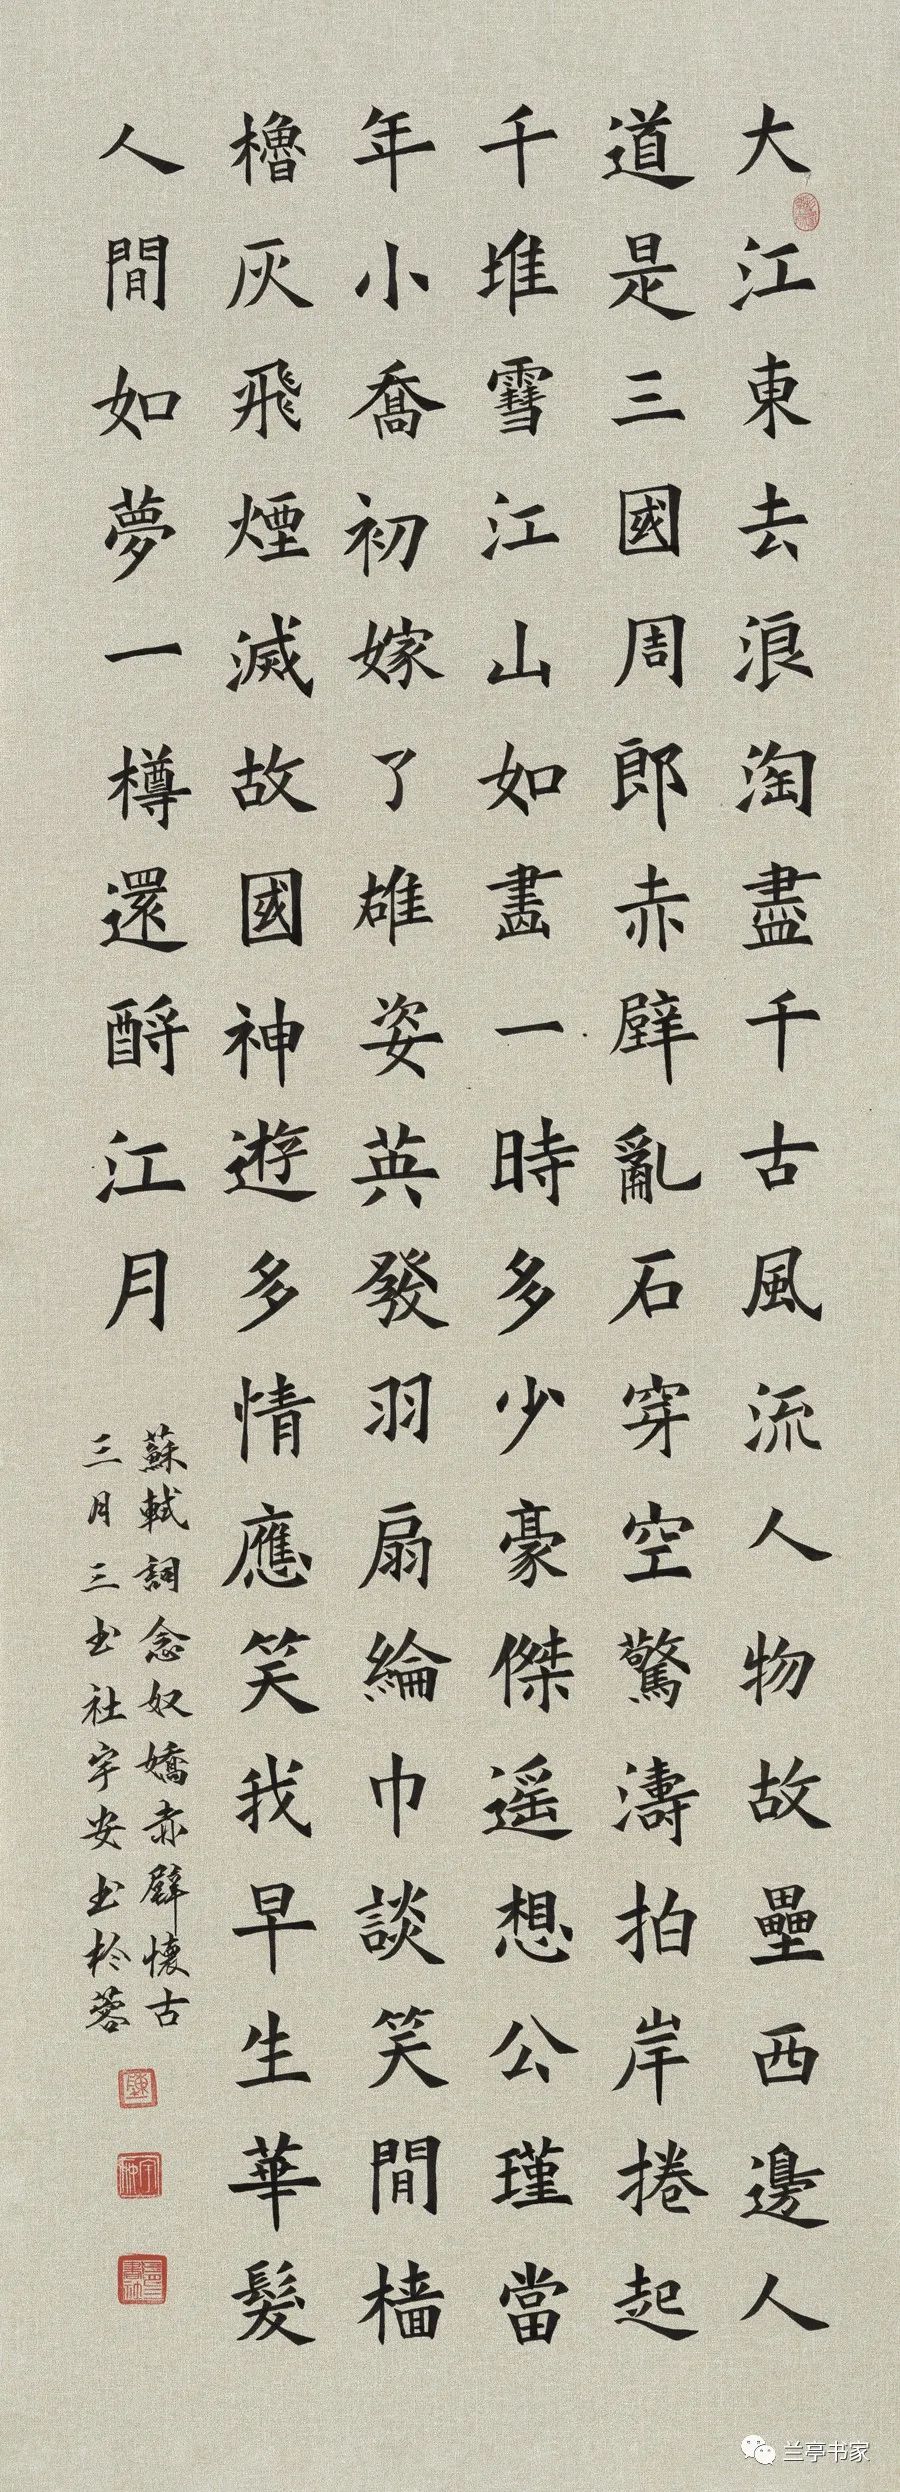 大江東去浪淘盡千古風流人物故壘西邊人
道是三國周郎赤壁亂石穿空驚濤拍岸捲起
千堆雪江山如畫一時多少豪傑遥想公瑾當
年小喬初嫁了雄姿英發羽扇綸巾談笑間檣
櫓灰飛煙滅故國神遊多情應笑我早生華髮
人間如夢一樽還酹江月
蘇軾詞念奴嬌赤壁懷古
三月三书社宇安书於蓉
兰亭书家